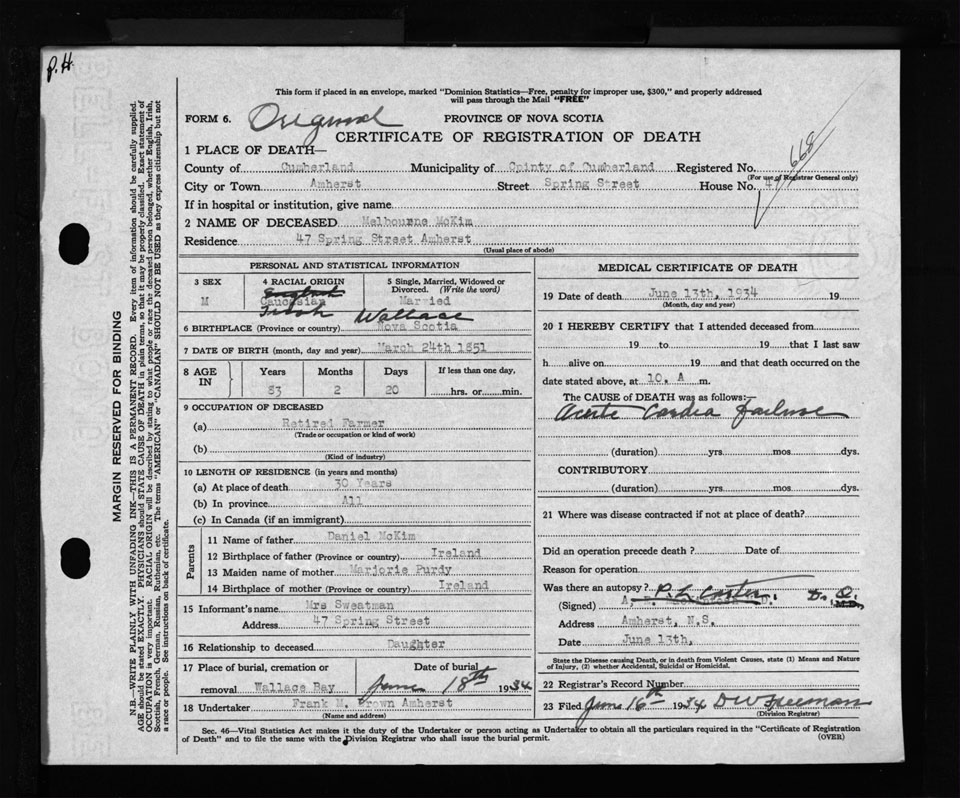 P.H.
This form if placed in an envelope, marked "Dominion Statistics—Free, penalty for improper use, $300," and properly addressed
will pass through the Mail "FREE"
FORM 6. Original PROVINCE OF NOVA SCOTIA
CERTIFICATE OF REGISTRATION OF DEATH
668
1 PLACE OF DEATH—
County of Cumherland Municipality of Cointy of Cumherland Registered No.
(For use of Registrar General only)
City or Town Amherst Street Spring Street House No. 47
If in hospital or institution, give name
2 NAME OF DECEASED Melbourne McKim
Residence 47 Spring Street Amherst
(Usual place of abode)
PERSONAL AND STATISTICAL INFORMATION
3 SEX 4 RACIAL ORIGIN 5 Single, Married, Widowed or
Divorced. (Write the word)
English
M Caucasian Married
Irish Wallace
6 BIRTHPLACE (Province or country) Nova Scotia
7 DATE OF BIRTH (month, day and year) March 24th 1851
8 AGE IN Years Months Days If less than one day,
83 2 20 hrs. or min.
9 OCCUPATION OF DECEASED
(a) Retired Farmer
(Trade or occupation or kind of work)
(b)
(Kind of industry)
10 LENGTH OF RESIDENCE (in years and months)
(a) At place of death 30 Years
(b) In province All
(c) In Canada (if an immigrant)
Parents
11 Name of father Daniel McKim
12 Birthplace of father (Province or country) Ireland
13 Maiden name of mother Marjorie Purdy
14 Birthplace of mother (Province or country) Ireland
15 Informant's name Mrs Sweatman
Address 47 Spring Street
16 Relationship to deceased Daughter
17 Place of burial, cremation or Date of burial
removal Wallace Bay June 18th 1934
18 Undertaker Frank M. Brown Amherst
(Name and address)
MEDICAL CERTIFICATE OF DEATH
19 Date of death June 13th, 1934 19
(Month, day and year)
20 I HEREBY CERTIFY that I attended deceased from
19 to 19 that I last saw
h alive on 19 and that death occurred on the
date stated above, at 10. A m.
The CAUSE of DEATH was as follows:—
Acute Cardia Failure
(duration) yrs. mos. dys.
CONTRIBUTORY
(duration) yrs. mos. dys.
21 Where was disease contracted if not at place of death?
Did an operation precede death? Date of
Reason for operation
Was there an autopsy?
(Signed) M.D.
Address Amherst, N.S.
Date June 13th,
State the Disease causing Death, or in death from Violent Causes, state (1) Means and Nature
of Injury, (2) whether Accidental, Suicidal or Homicidal.
22 Registrar's Record Number
23 Filed June 16th 1934 DW Freeman
(Division Registrar)
Sec. 46—Vital Statistics Act makes it the duty of the Undertaker or person acting as Undertaker to obtain all the particulars required in the "Certificate of Registration
of Death" and to file the same with the Division Registrar who shall issue the burial permit. (OVER)
MARGIN RESERVED FOR BINDING
N.B.—WRITE PLAINLY WITH UNFADING INK—THIS IS A PERMANENT RECORD. Every item of information should be carefully supplied.
AGE should be stated EXACTLY. PHYSICIANS should STATE CAUSE OF DEATH in plain terms, so that it may be properly classified. Exact statement of
OCCUPATION is very important. RACIAL ORIGIN will be described by stating to what people or race the deceased person belonged, whether English, Irish,
Scottish, French, German, Russian, Ruthenian, etc. The terms "AMERICAN" or "CANADIAN" SHOULD NOT BE USED as they express citizenship but not
a race or people. See instructions on back of certificate.